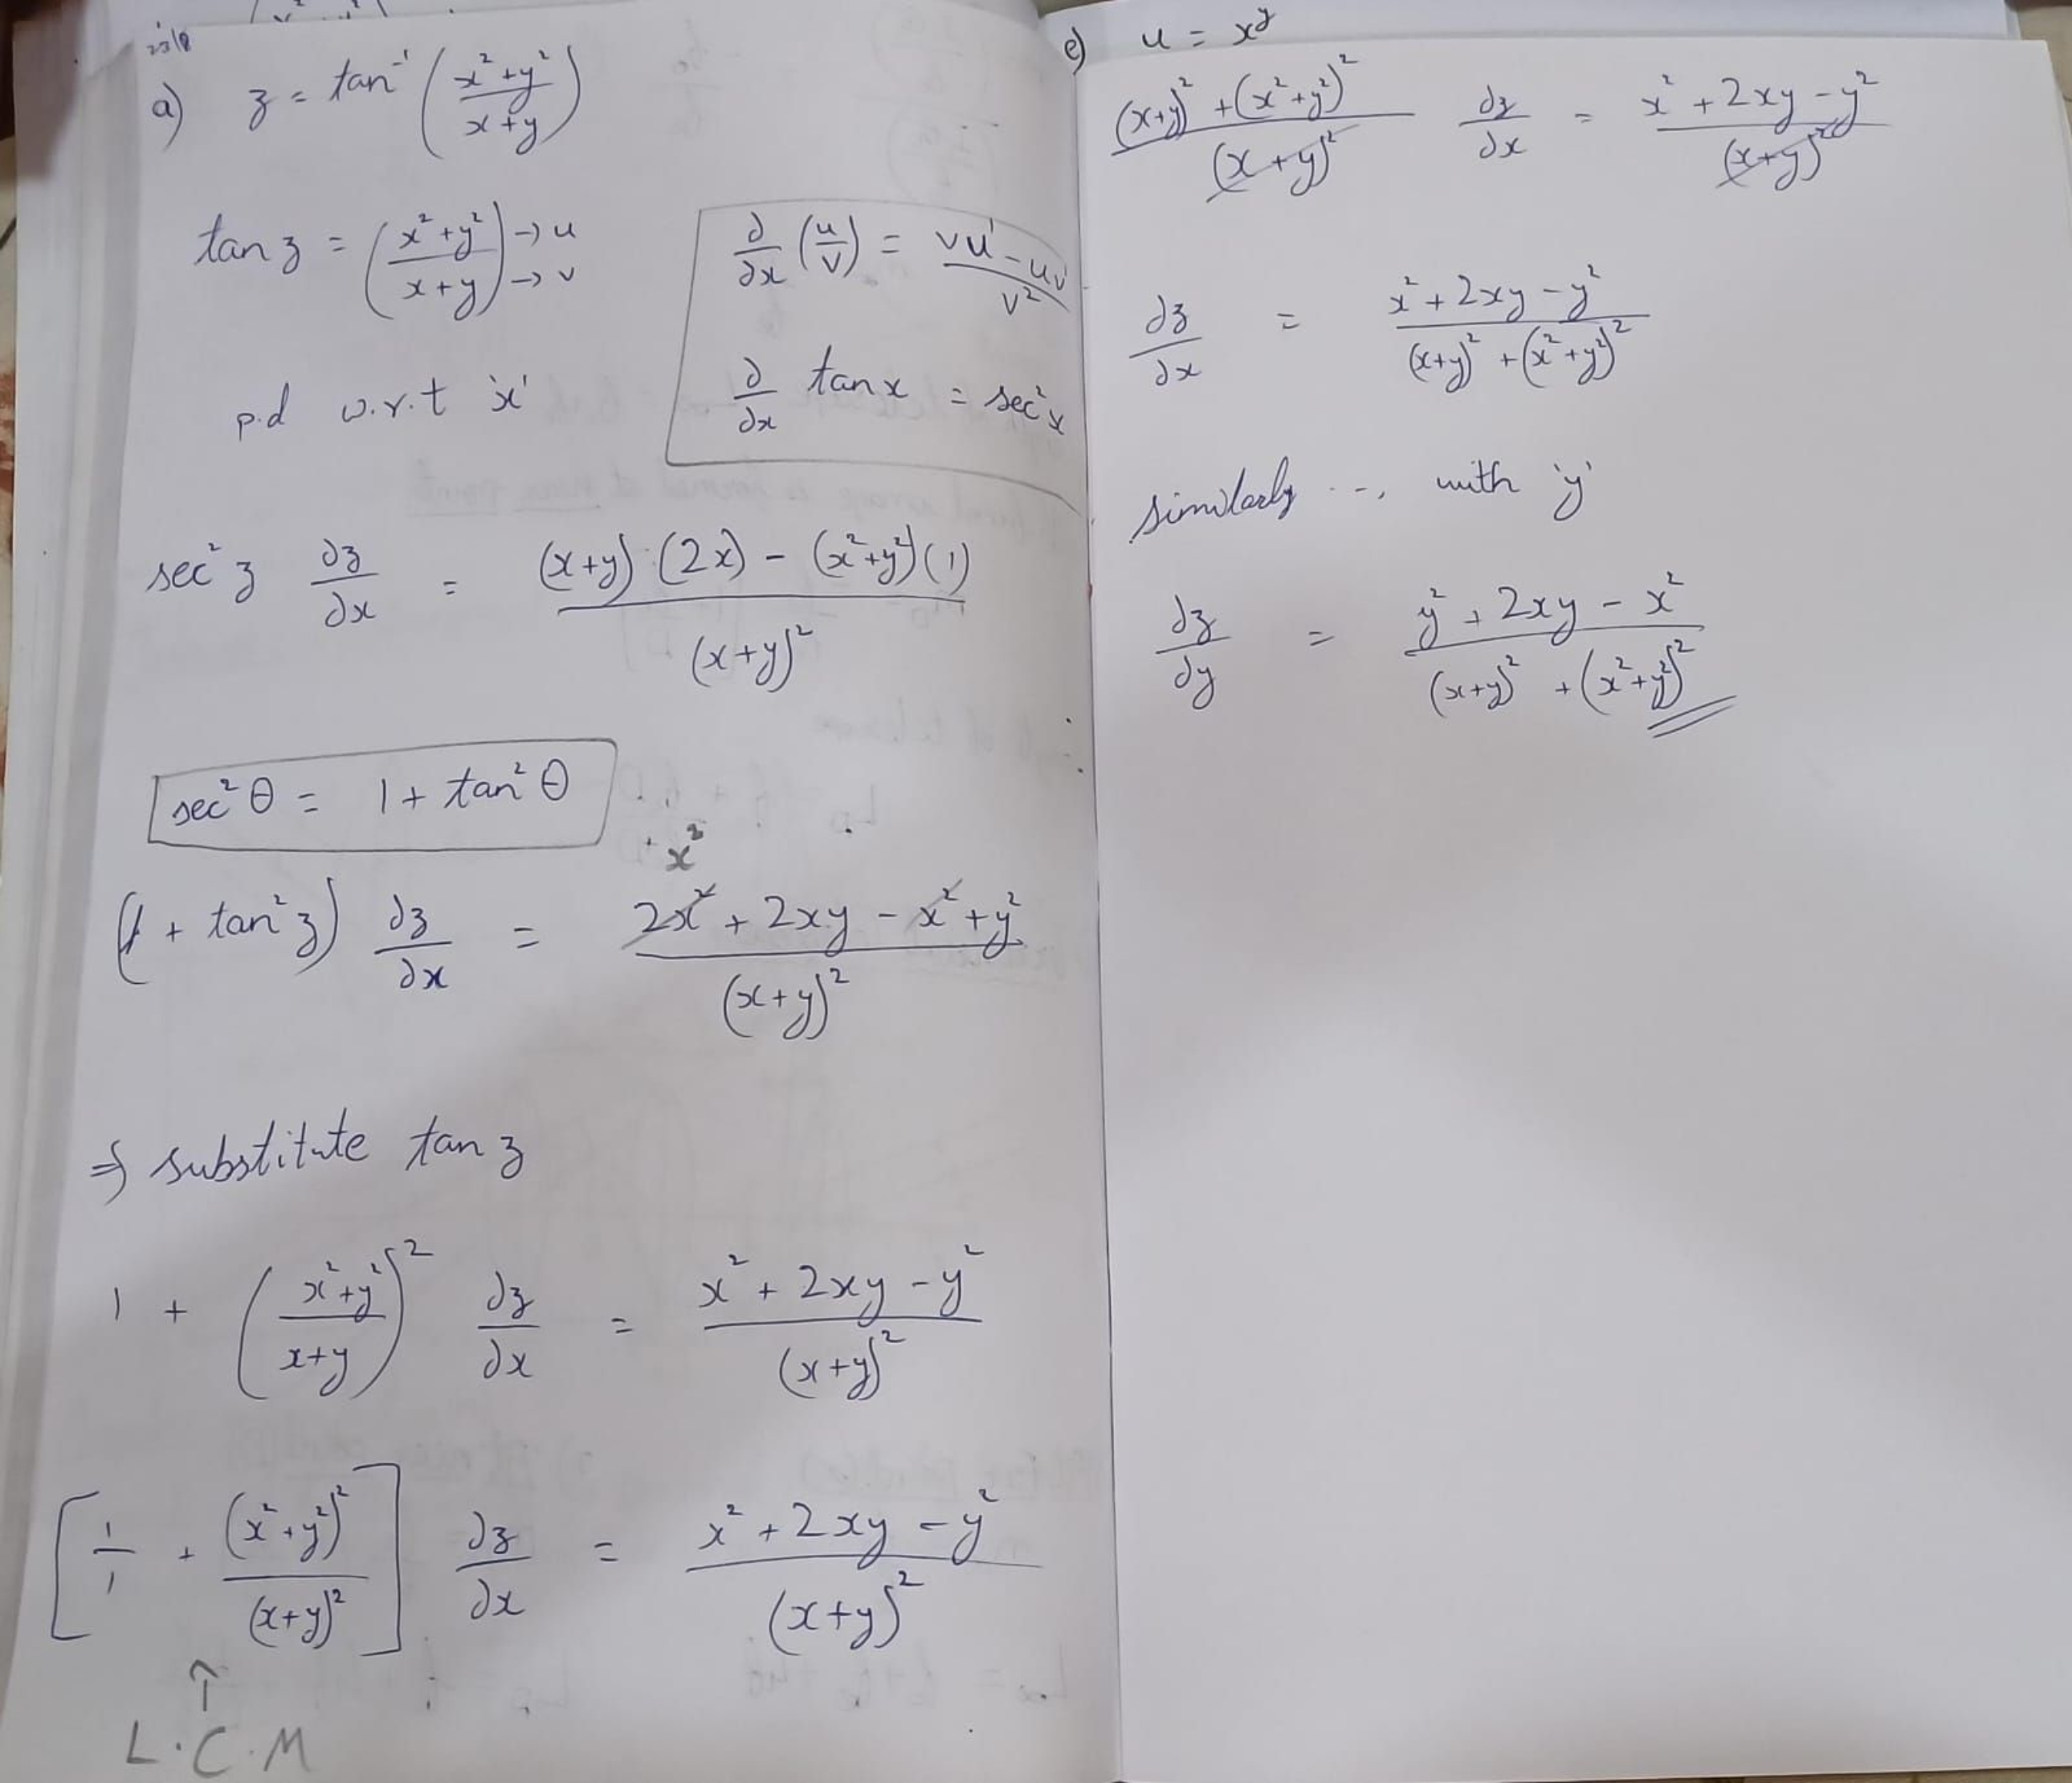 23/8
a) z = tan⁻¹ ((x²+y²)/(x+y))
tan z = ((x²+y²)/(x+y)) → u → v
∂/∂x (u/v) = (vu' - uv')/v²
∂/∂x tan x = sec² x
p.d w.r.t 'x'
sec² z ∂z/∂x = ((x+y)·(2x) - (x²+y²)(1))/(x+y)²
sec² θ = 1 + tan² θ
+ x²
(1 + tan² z) ∂z/∂x = (2x² + 2xy - x² + y²)/(x+y)²
⇒ substitute tan z
1 + ((x²+y²)/(x+y))² ∂z/∂x = (x² + 2xy - y²)/(x+y)²
[1/1 + (x²+y²)²/(x+y)²] ∂z/∂x = (x² + 2xy - y²)/(x+y)²
↑
L.C.M
e) u = x^y
((x+y)² + (x²+y²)²)/(x+y)² ∂z/∂x = (x² + 2xy - y²)/(x+y)²
∂z/∂x = (x² + 2xy - y²)/((x+y)² + (x²+y²)²)
similarly ... with 'y'
∂z/∂y = (y² + 2xy - x²)/((x+y)² + (x²+y²)²)